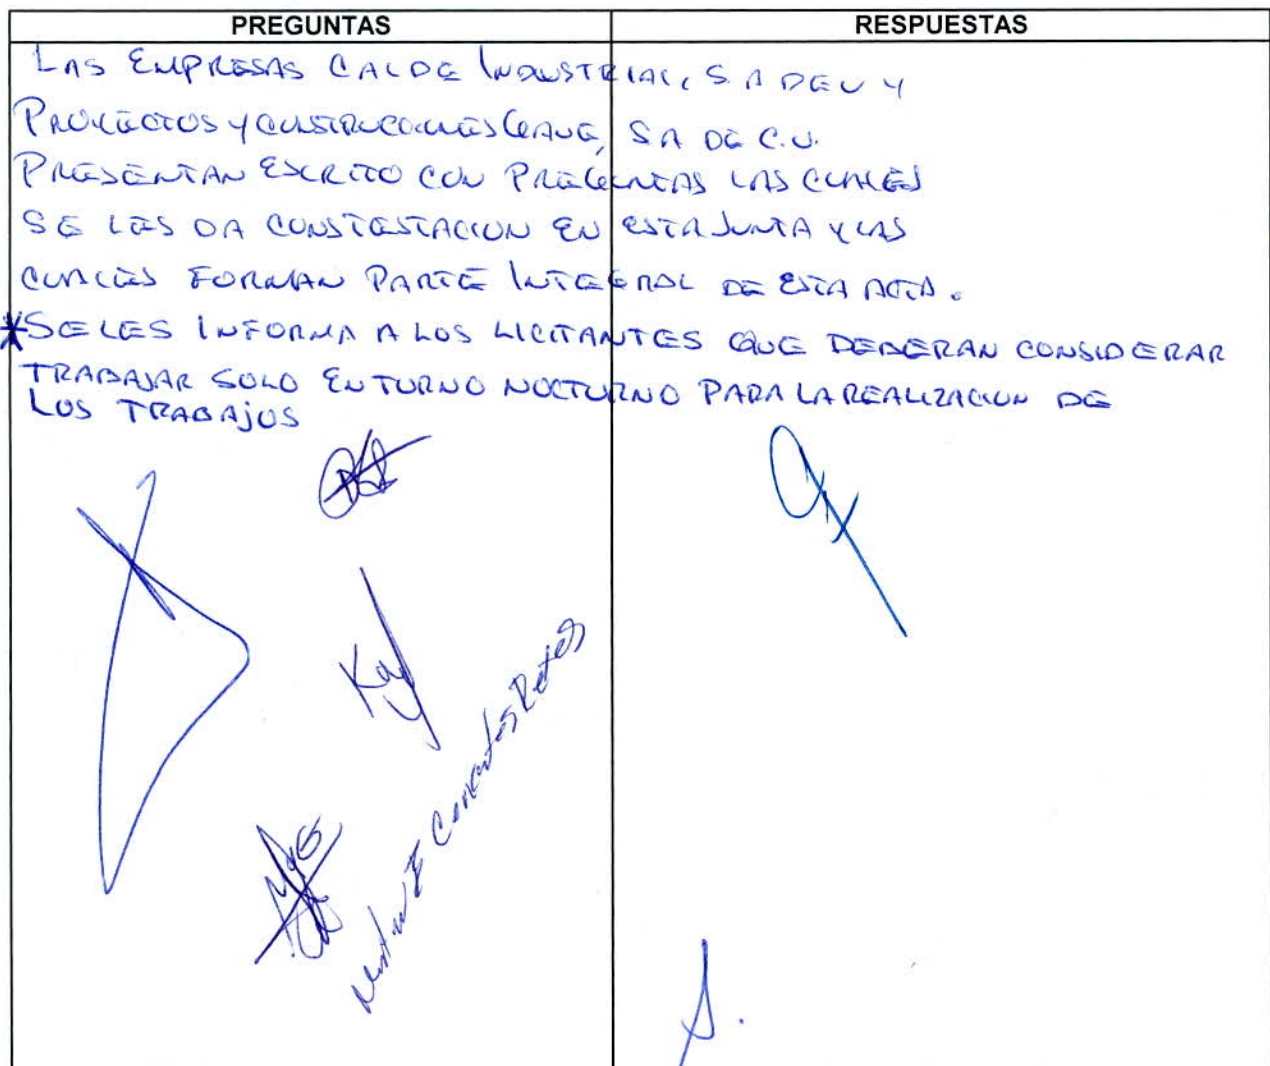 PREGUNTAS RESPUESTAS
LAS EMPRESAS CALDE INDUSTRIAL, S A DE V Y
PROYECTOS Y CONSTRUCCIONES SA DE C.V.
PRESENTAN ESCRITO CON PREGUNTAS LAS CUALES
SE LES DA CONSTESTACION EN ESTA JUNTA Y LAS
CUALES FORMAN PARTE INTEGRAL DE ESTA ACTA.
*SE LES INFORMA A LOS LICITANTES QUE DEBERAN CONSIDERAR
TRABAJAR SOLO EN TURNO NOCTURNO PARA LA REALIZACION DE
LOS TRABAJOS